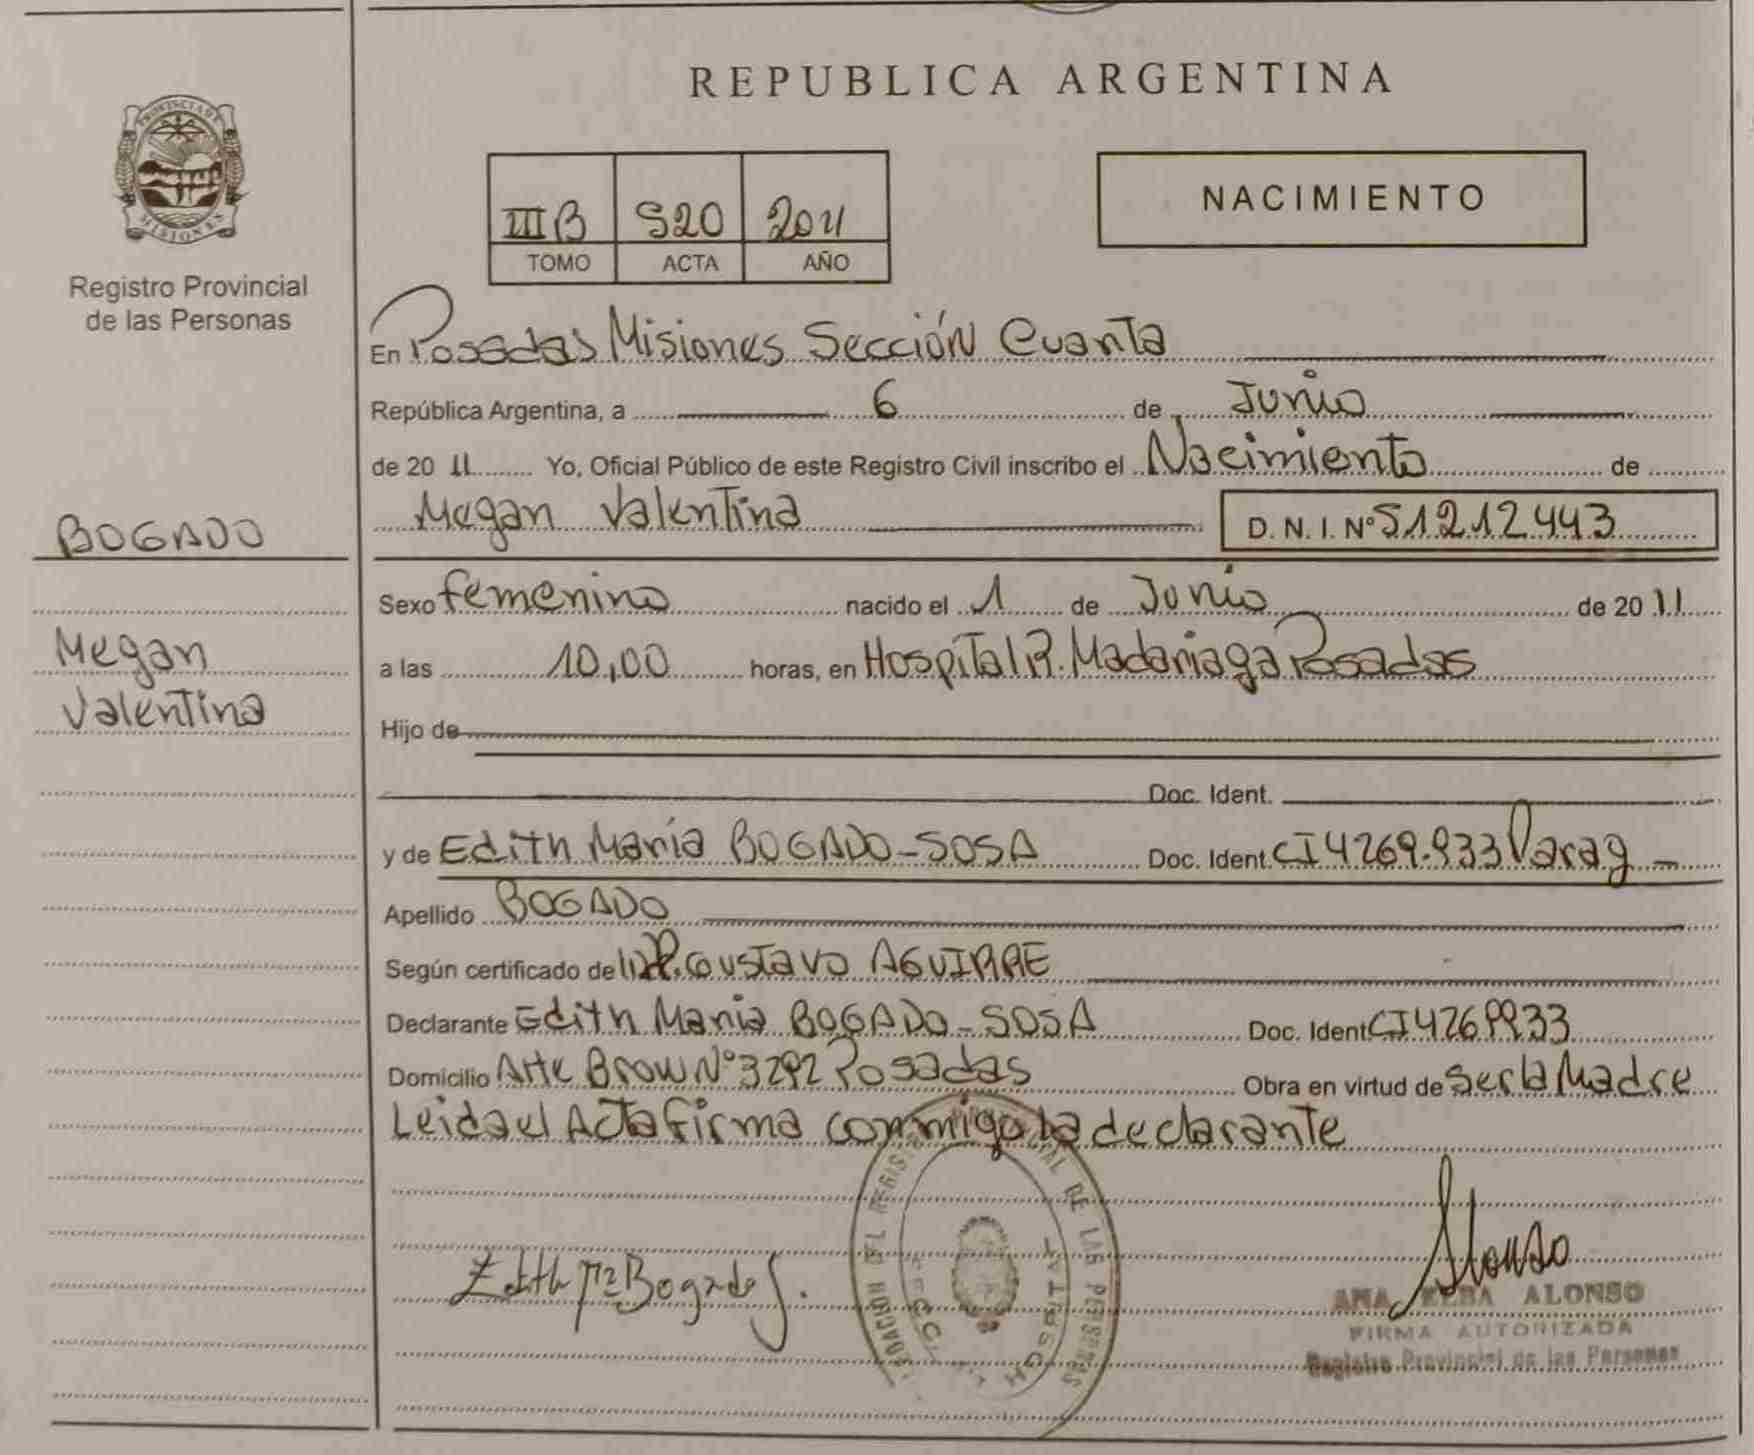 REPUBLICA ARGENTINA
PROVINCIA DE MISIONES
Registro Provincial
de las Personas
III B S20 2011
TOMO ACTA AÑO
NACIMIENTO
En Posadas Misiones Sección Cuarta
República Argentina, a 6 de Junio
de 20 11 Yo, Oficial Público de este Registro Civil inscribo el Nacimiento de
Megan Valentina D. N. I. Nº 51212443
BOGADO
Sexo femenino nacido el 1 de Junio de 20 11
Megan
Valentina
a las 10,00 horas, en Hospital R. Madariaga Posadas
Hijo de
Doc. Ident.
y de Edith María BOGADO-SOSA Doc. Ident. CI 4269.933 Parag
Apellido BOGADO
Según certificado de Gustavo AGUIRRE
Declarante Edith María BOGADO-SOSA Doc. Ident CI4269933
Domicilio Alte Brown Nº 3292 Posadas Obra en virtud de Ser la Madre
Leida el Acta firma conmigo la declarante
Edith Mª Bogado S.
Alonso
ANA ELBA ALONSO
FIRMA AUTORIZADA
Registro Provincial de las Personas